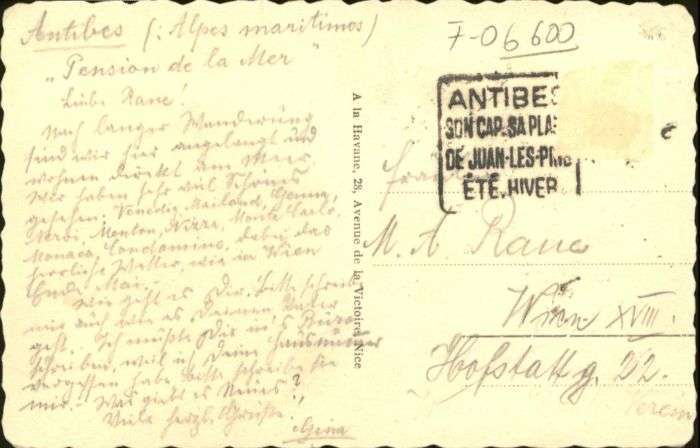 Antibes (: Alpes maritimes)
„Pension de la Mer"
Liebe Rane!
Nach langer Wanderung
sind wir hier angelangt und
wohnen direkt am Meer.
Wir haben sehr viel Schönes
gesehen: Venedig, Mailand, Genua,
Nervi, Menton, Nizza, Monte Carlo,
Monaco, Condamine, dabei das
herrliche Wetter, wie in Wien
Ende Mai. –
Wie geht es Dir, bitte schreib
mir auch wie es Deinem Vater
geht. Ich mußte Dir in's Büro
schreiben, weil ich Deine Hausnummer
vergessen habe, bitte schreibe sie
mir. – Was giebt es Neues?
Viele herzl. Grüße.
A la Havane, 28, Avenue de la Victoire, Nice
7-06 600
ANTIBES
SON CAP. SA PLA
DE JUAN-LES-PINS
ÉTÉ. HIVER
M. A. Rane
Wien XVIII.
Hofstattg. 22.